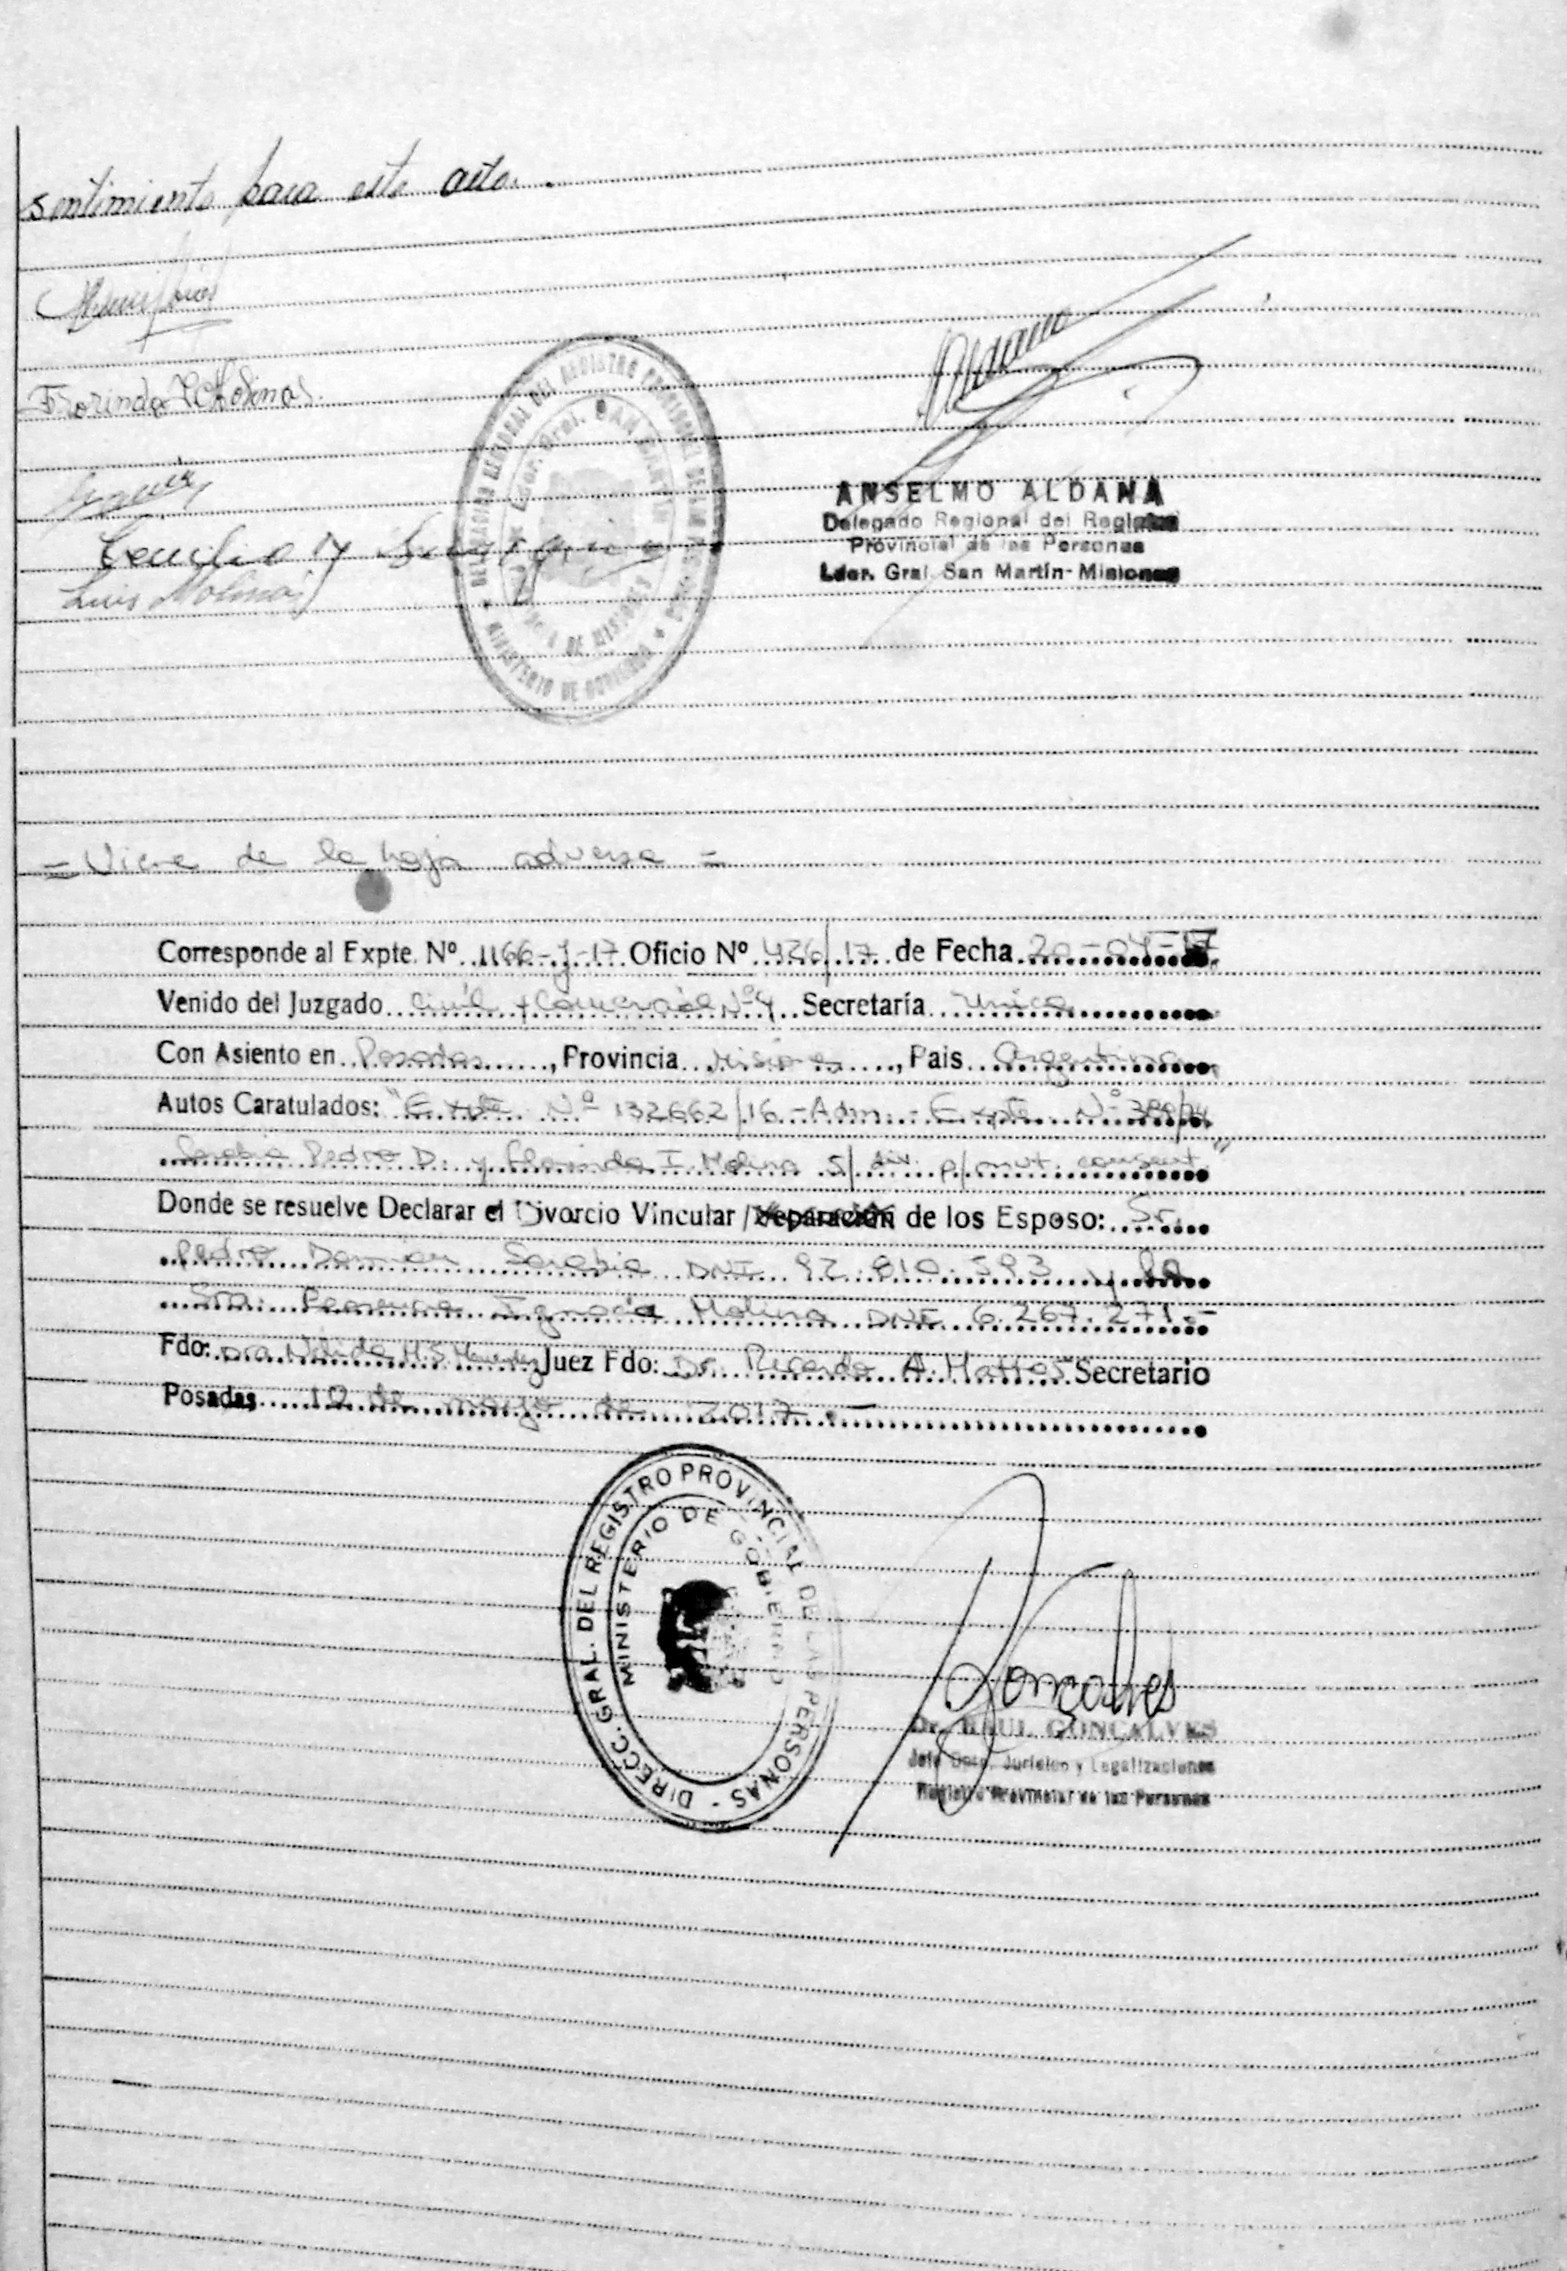 sentimiento para este acto.
Luis Molinas
ANSELMO ALDANA
Delegado Regional del Registro
Provincial de las Personas
Ldor. Gral. San Martín - Misiones
= Viene de la hoja adversa =
Corresponde al Expte. Nº 1166-J-17 Oficio Nº 426/17 de Fecha 20-04-17
Venido del Juzgado Civil y Comercial Nº 4 Secretaría Unica
Con Asiento en Posadas, Provincia Misiones, Pais Argentina
Autos Caratulados: "Expte Nº 132662/16 - Adm. - Expte. Nº
Sarabia Pedro D. y Florinda I. Molina S/ div. p/ mut. consent."
Donde se resuelve Declarar el Divorcio Vincular / Separación de los Esposo: Sr.
Pedro Damian Sarabia DNI 92.810.593 y la
Sra. Ignacia Molina DNI 6.267.271.-
Fdo: Dra. Juez Fdo: Dr. Ricardo A. Mattos Secretario
Posadas, 10 de mayo de 2017.-
DIRECC. GRAL. DEL REGISTRO PROVINCIAL DE LAS PERSONAS -
MINISTERIO DE GOBIERNO
Goncalves
Dr. RAUL GONCALVES
Jefe Dpto. Jurídico y Legalizaciones
Registro Provincial de las Personas